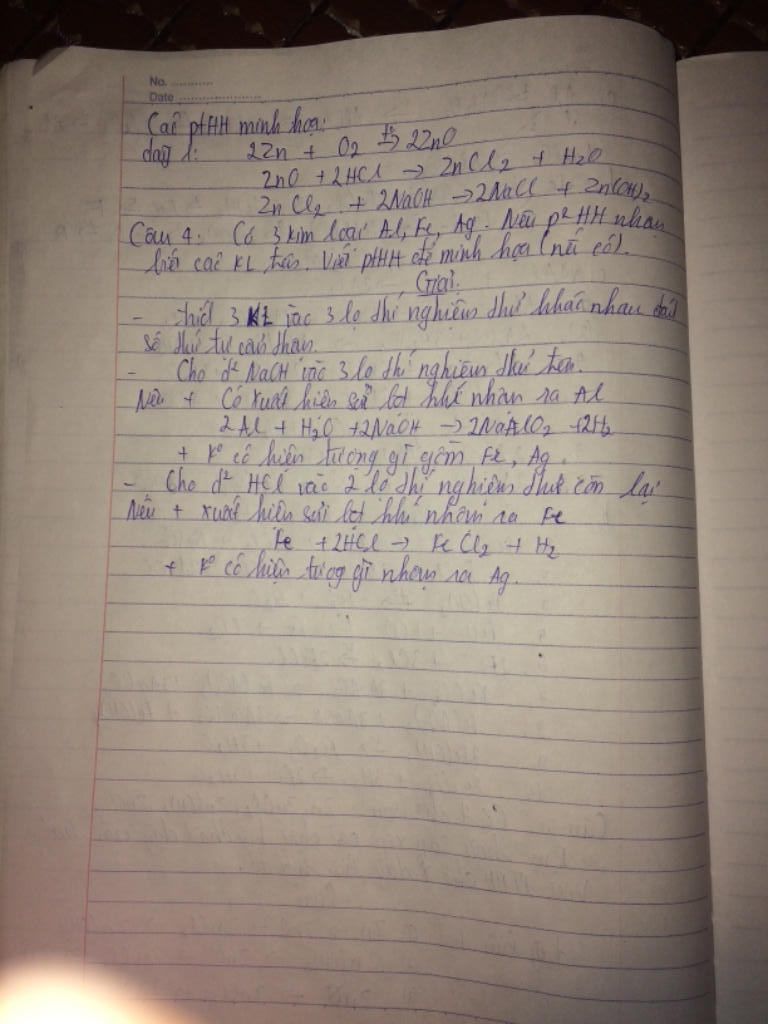 No. ............
Date ........................
Các ptHH minh họa:
dãy 1: 2Zn + O2 t°→ 2ZnO
ZnO + 2HCl → ZnCl2 + H2O
ZnCl2 + 2NaOH → 2NaCl + Zn(OH)2
Câu 4: Có 3 kim loại Al, Fe, Ag. Nêu p² HH nhận
biết các KL trên. Viết ptHH để minh họa (nếu có).
Giải:
- 3 KL vào 3 lọ thí nghiệm thử khác nhau
số thứ tự cẩn thận.
- Cho d² NaOH vào 3 lọ thí nghiệm thử trên.
Nếu + Có xuất hiện sủi bọt khí nhận ra Al
2Al + H2O + 2NaOH → 2NaAlO2 + 2H2
+ K° có hiện tượng gì gồm Fe, Ag.
- Cho d² HCl vào 2 lọ thí nghiệm thử còn lại
Nếu + xuất hiện sủi bọt khí nhận ra Fe
Fe + 2HCl → FeCl2 + H2
+ K° có hiện tượng gì nhận ra Ag.